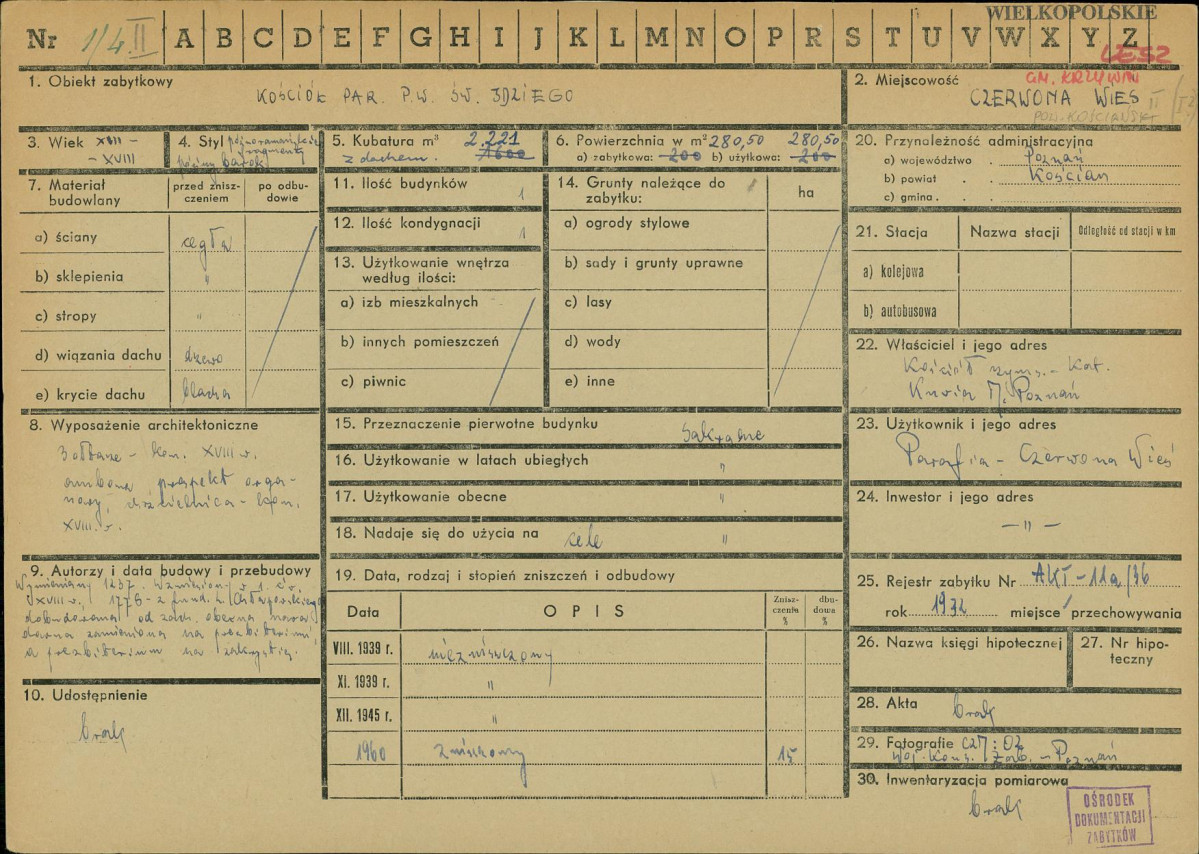 WIELKOPOLSKIE
Nr 1/4 II A B C D E F G H I J K L M N O P R S T U V W X Y Z
LESZ
1. Obiekt zabytkowy
KOŚCIÓŁ PAR. P.W. ŚW. IDZIEGO
2. Miejscowość
GM. KRZYWIŃ
CZERWONA WIEŚ II
POW. KOŚCIAŃSKI
3. Wiek XIII –
– XVIII
4. Styl późnoromańskie
fragmenty
późny barok
5. Kubatura m³ 2.221
z dachem. 1600
6. Powierzchnia w m² 280,50 280,50
a) zabytkowa: 200 b) użytkowa: 200
20. Przynależność administracyjna
a) województwo . Poznań
b) powiat . . Kościan
c) gmina . . .
7. Materiał budowlany
przed zniszczeniem
po odbudowie
a) ściany cegła
b) sklepienia "
c) stropy "
d) wiązania dachu drzewo
e) krycie dachu blacha
11. Ilość budynków 1
12. Ilość kondygnacji 1
13. Użytkowanie wnętrza
według ilości:
a) izb mieszkalnych
b) innych pomieszczeń
c) piwnic
14. Grunty należące do
zabytku:
ha
a) ogrody stylowe
b) sady i grunty uprawne
c) lasy
d) wody
e) inne
21. Stacja Nazwa stacji Odległość od stacji w km
a) kolejowa
b) autobusowa
22. Właściciel i jego adres
Kościół rzyms.-Kat.
Kuria M. Poznań
8. Wyposażenie architektoniczne
3 ołtarze – kon. XVIII w.
ambona, prospekt orga-
nowy, chrzcielnica – kon.
XVIII. w.
15. Przeznaczenie pierwotne budynku sakralne
16. Użytkowanie w latach ubiegłych "
17. Użytkowanie obecne "
18. Nadaje się do użycia na cele "
23. Użytkownik i jego adres
Parafia – Czerwona Wieś
24. Inwestor i jego adres
– " –
9. Autorzy i data budowy i przebudowy
Wymieniany 1237. Wzniesiony w 1. ćw.
XVIII w., 1776 – z fund. Chłapowskiego
dobudowana od zach. obecna nawa,
dawna zamieniona na prezbiterium,
a prezbiterium na zakrystię.
10. Udostępnienie
brak
19. Data, rodzaj i stopień zniszczeń i odbudowy
Data OPIS Zniszczeniu % dbudowa %
VIII. 1939 r. niezniszczony
XI. 1939 r. "
XII. 1945 r. "
1960 zniszczony 15
25. Rejestr zabytku Nr AKI – 11a/36
rok 1932 miejsce przechowywania
26. Nazwa księgi hipotecznej
27. Nr hipoteczny
28. Akta brak
29. Fotografie
Woj. Kons. Zab. – Poznań
30. Inwentaryzacja pomiarowa
brak
OŚRODEK
DOKUMENTACJI
ZABYTKÓW